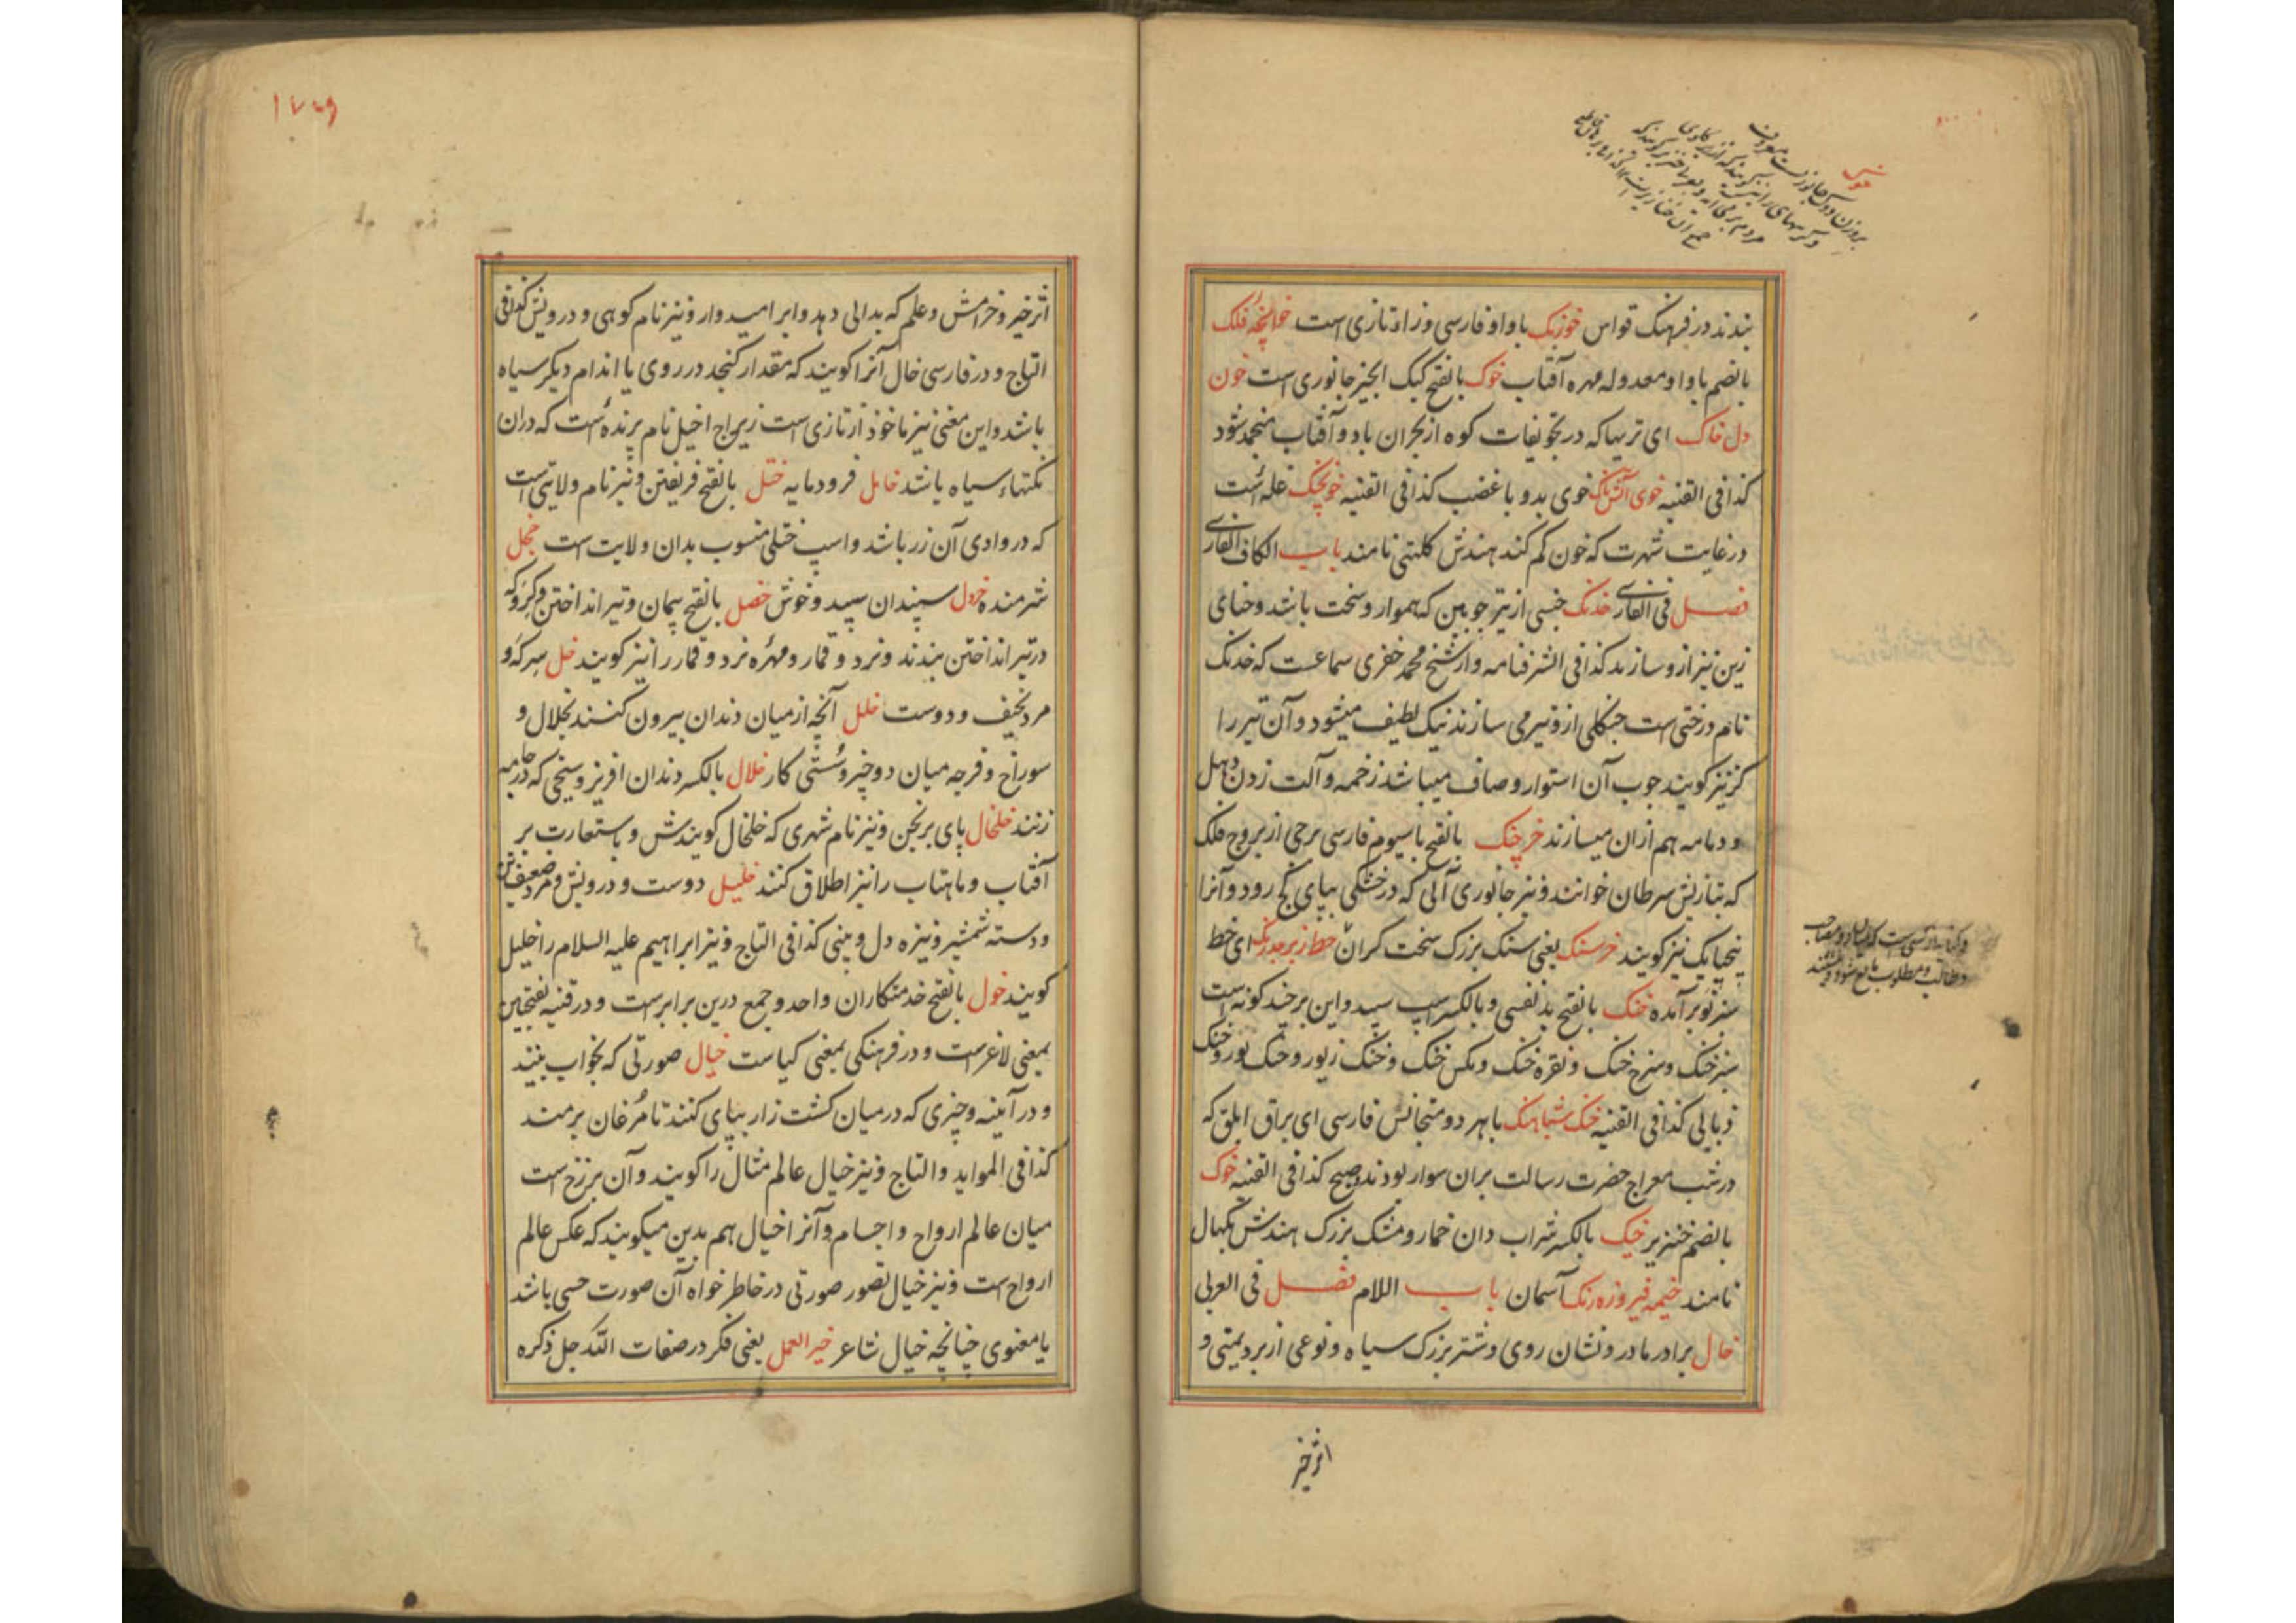 خوک
بروزن دوک جانوریست معروف
بندند در فرهنک قواس خوزنک با واو فارسی و زاء تازی است خوانچهٔ فلک
بالضم با واو معدوله مهره آفتاب خوک بالفتح کیک الجیز جانوری است خون
دل خاک ای تریها که در تجویفات کوه از بحران باد و آفتاب منجمد شود
کذا فی القنیه خوی آتشناک خوی بد و با غضب کذا فی القنیه خونجک غله ئست
در غایت شهرت که خون کم کند هندش کلتهی نامند باب الکاف الفارسی
فصل فی الفارسی خدنک جنسی از تیر چوبین که هموار و سخت باشد و حنای
زین نیز ازو سازند کذا فی الشرفنامه و از شیخ محمد خفری سماعست که خدنک
نام درختی است جنکلی ازو تیر می سازند نیک لطیف میشود و آن تیر را
کز نیز کویند چوب آن استوار و صاف میباشد زخمه و آلت زدن دهل
و دمامه هم ازان میسازند خرچنک بالفتح با سیوم فارسی برجی از بروج فلک
که بتازیش سرطان خوانند و نیز جانوری آبی که در خشکی بپای کج رود و آنرا
پنجپایک نیز کویند خرسنک یعنی سنک بزرک سخت کران خط زبرجد رنک ای خط
سبز نو بر آمده خنک بالفتح بد نفسی و بالکسر اسپ سپید و این بر چند کونه است
سبز خنک و سرخ خنک و نقره خنک و مکس خنک و خنک زیور و خنک بور و خنک
ذبابی کذا فی القنیه خنک شباهنک با هر دو متجانس فارسی ای براق ابلق که
در شب معراج حضرت رسالت بران سوار بودند و صبح کذا فی القنیه خوک
بالضم خنزیر خیک بالکسر شراب دان خمار و مشک بزرک هندش پکهال
نامند خیمه فیروزه رنک آسمان باب اللام فصل فی العربی
خال برادر مادر و نشان روی و شتر بزرک سیاه و نوعی از برد یمنی و
اثر خیر
۱۷۷۹
اثر خیر و خرامش و علم که بدالی دهد و ابر امیدوار و نیز نام کوهی و درویش کذا فی
التاج و در فارسی خال آنرا کویند که مقدار کنجد در روی یا اندام دیکر سیاه
باشد و این معنی نیز ماخوذ از تازی است زیراچ اخیل نام پرنده ئست که دران
نکتهاء سیاه باشد خامل فرومایه ختل بالفتح فریفتن و نیز نام ولایتی است
که در وادی آن زر باشد و اسپ ختلی منسوب بدان ولایت است خجل
شرمنده خردل سپندان سپید و خوش خصل بالفتح پیمان و تیر انداختن و کرو که
در تیر انداختن بندند و نرد و قمار و مهرهٔ نرد و قمار را نیز کویند خل سرکه و
مرد نحیف و دوست خلل آنچه از میان دندان بیرون کنند بخلال و
سوراخ و فرجه میان دو چیز و سستی کار خلال بالکسر دندان افریز و سیخی که در جامه
زنند خلخال پای برنجن و نیز نام شهری که خلخال کویندش و باستعارت بر
آفتاب و ماهتاب را نیز اطلاق کنند خلیل دوست و درویش و مرد ضعیف تن
و دسته شمشیر و نیزه دل و بینی کذا فی التاج و نیز ابراهیم علیه السلام را خلیل
کویند خول بالفتح خدمتکاران واحد و جمع درین برابرست و در قنیه بفتحتین
بمعنی لاغر است و در فرهنکی بمعنی کیاست خیال صورتی که بخواب بینند
و در آیینه و چیزی که در میان کشت زار بپای کنند تا مرغان برمند
کذا فی الموائد و التاج و نیز خیال عالم مثال را کویند و آن برزخ است
میان عالم ارواح و اجسام و آنرا خیال هم بدین میکویند که عکس عالم
ارواح است و نیز خیال تصور صورتی در خاطر خواه آن صورت حسی باشد
یا معنوی چنانچه خیال شاعر خیر العمل یعنی فکر در صفات الله جل ذکره